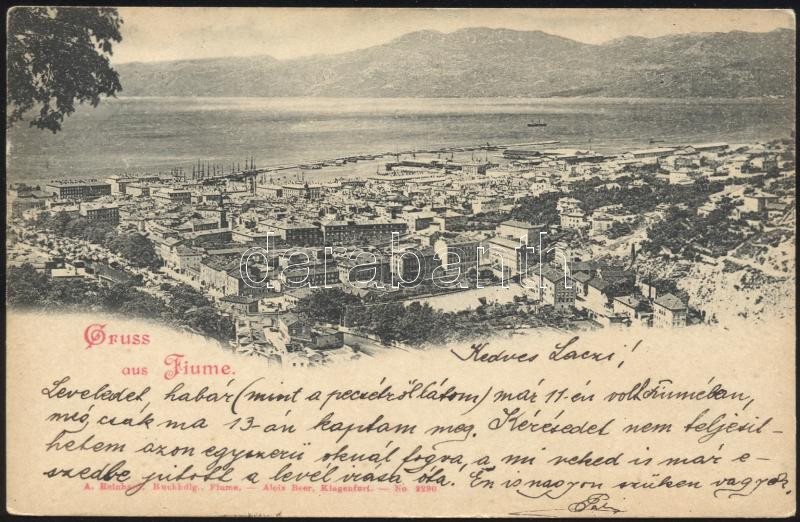 Gruss
aus Fiume.
Kedves Laczi!
Leveledet, habár (mint a pecsétről látom) már 11-én volt Fiuméban,
még csak ma 13-án kaptam meg. Kérésedet nem teljesít-
hetem azon egyszerű oknál fogva, a mi neked is már e-
szedbe jutott a levél irása óta. Én is nagyon szüken vagyok.
A. Reinhard, Buchhdlg., Fiume. — Alois Beer, Klagenfurt. — No. 2290
databanth